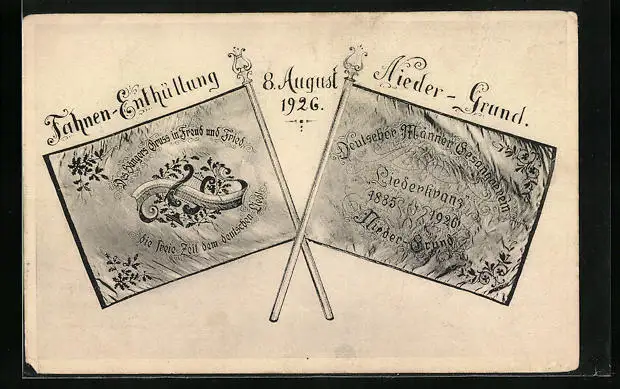 Fahnen-Enthüllung
8. August
1926.
Nieder-Grund.
Des Sängers Gruss in Freud und Fried
die freie Zeit dem deutschen Lied
Deutscher Männer Gesangverein
"Liederklang"
1885 1926
Nieder-Grund